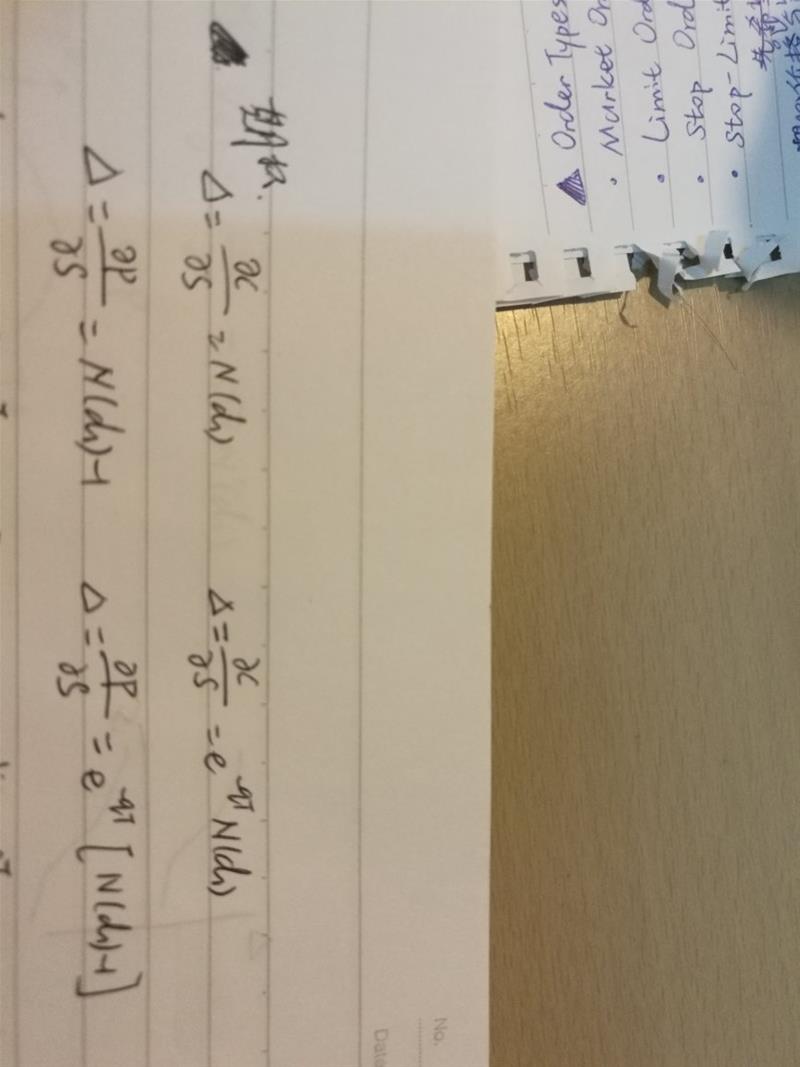 No.
Date
Δ = ∂c/∂S = N(d₁)    Δ = ∂c/∂S = e^{-qT} N(d₁)
Δ = ∂P/∂S = N(d₁)-1    Δ = ∂P/∂S = e^{-qT} [N(d₁)-1]
Order Types
• Market Or
• Limit Ord
• Stop Ord
• Stop-Limit